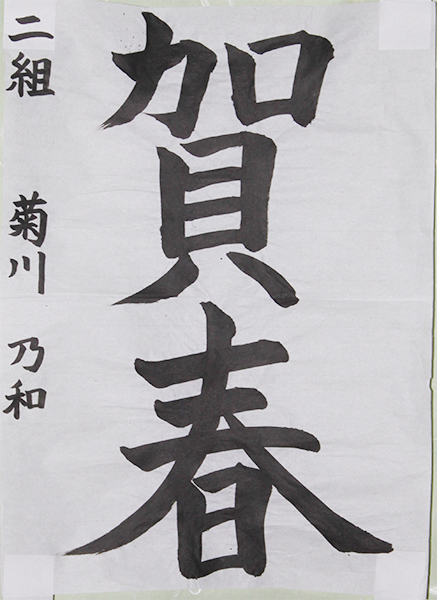 賀春
二組 菊川 乃和